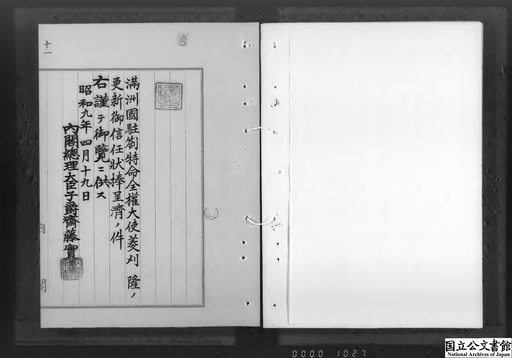 十一
満洲國駐箚特命全權大使菱刈隆ノ
更新御信任狀捧呈濟ノ件
右謹テ御覽ニ供ス
昭和九年四月十九日
內閣總理大臣子爵齋藤實
0000 1027
国立公文書館
National Archives of Japan